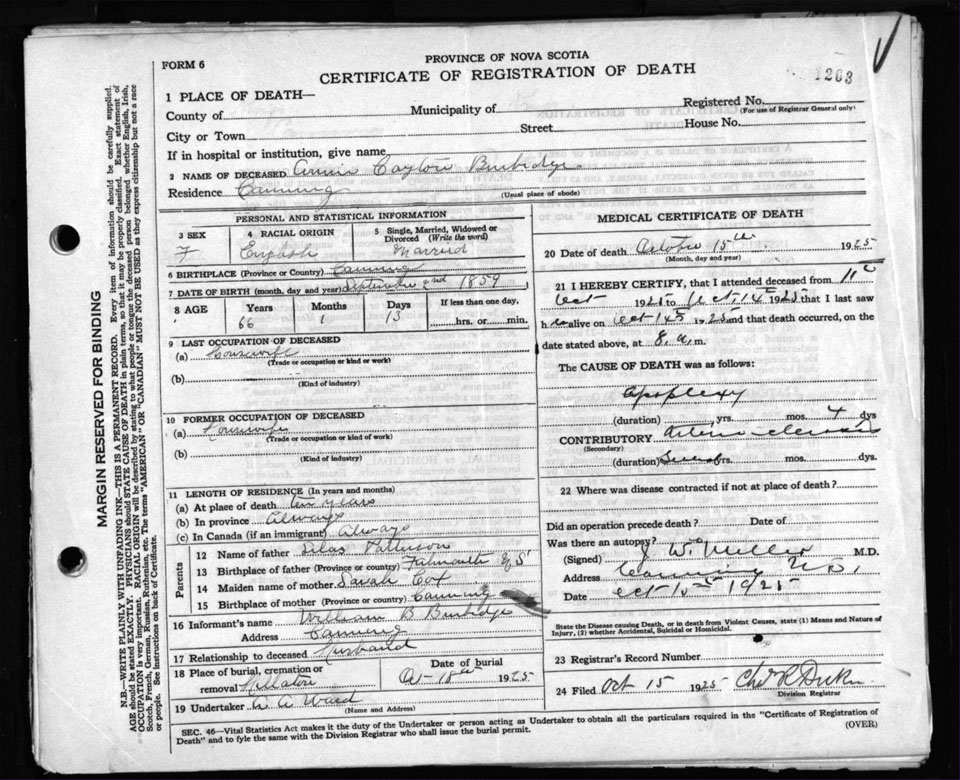 FORM 6
PROVINCE OF NOVA SCOTIA
CERTIFICATE OF REGISTRATION OF DEATH
1203
1 PLACE OF DEATH—
County of
Municipality of
Registered No.
(For use of Registrar General only)
City or Town
Street
House No.
If in hospital or institution, give name
2 NAME OF DECEASED Annie Cayton Burbidge
Residence Canning
(Usual place of abode)
PERSONAL AND STATISTICAL INFORMATION
3 SEX
F
4 RACIAL ORIGIN
English
5 Single, Married, Widowed or Divorced (Write the word)
Married
6 BIRTHPLACE (Province or Country) Canning
7 DATE OF BIRTH (month, day and year) September 2nd 1859
8 AGE
Years
66
Months
1
Days
13
If less than one day,
hrs. or min.
9 LAST OCCUPATION OF DECEASED
(a) Housewife
(Trade or occupation or kind of work)
(b)
(Kind of industry)
10 FORMER OCCUPATION OF DECEASED
(a) Housewife
(Trade or occupation or kind of work)
(b)
(Kind of industry)
11 LENGTH OF RESIDENCE (In years and months)
(a) At place of death years
(b) In province Always
(c) In Canada (if an immigrant) Always
Parents
12 Name of father Silas Patterson
13 Birthplace of father (Province or country) Falmouth N S
14 Maiden name of mother Sarah Cox
15 Birthplace of mother (Province or country) Canning
16 Informant's name William B Burbidge
Address Canning
17 Relationship to deceased Husband
18 Place of burial, cremation or removal
Date of burial
Oct 18th 1925
19 Undertaker A A Ward
(Name and Address)
MEDICAL CERTIFICATE OF DEATH
20 Date of death October 15th 1925
(Month, day and year)
21 I HEREBY CERTIFY, that I attended deceased from 11th
Oct 1925 to Oct. 14th 1925 that I last saw
h er alive on Oct 14th 1925 and that death occurred, on the
date stated above, at 8 a. m.
The CAUSE OF DEATH was as follows:
apoplexy
(duration) yrs. mos. 4 dys
CONTRIBUTORY Arterio-sclerosis
(Secondary)
(duration) Several yrs. mos. dys.
22 Where was disease contracted if not at place of death?
Did an operation precede death? Date of
Was there an autopsy? no
(Signed) J W Miller M.D.
Address Canning N.S.
Date Oct 15th 1925
State the Disease causing Death, or in death from Violent Causes, state (1) Means and Nature of Injury, (2) whether Accidental, Suicidal or Homicidal.
23 Registrar's Record Number
24 Filed Oct 15 1925
Division Registrar
SEC. 46—Vital Statistics Act makes it the duty of the Undertaker or person acting as Undertaker to obtain all the particulars required in the "Certificate of Registration of
Death" and to fyle the same with the Division Registrar who shall issue the burial permit.
(OVER)
MARGIN RESERVED FOR BINDING
N.B.—WRITE PLAINLY WITH UNFADING INK—THIS IS A PERMANENT RECORD. Every item of information should be carefully supplied.
AGE should be stated EXACTLY. PHYSICIANS should STATE CAUSE OF DEATH in plain terms, so that it may be properly classified. Exact statement of
OCCUPATION is very important. RACIAL ORIGIN will be described by stating to what people or tongue the deceased person belonged whether English, Irish,
Scotch, French, German, Russian, Ruthenian, etc. The terms "AMERICAN" OR "CANADIAN" MUST NOT BE USED as they express citizenship but not a race
or people. See instructions on back of Certificate.